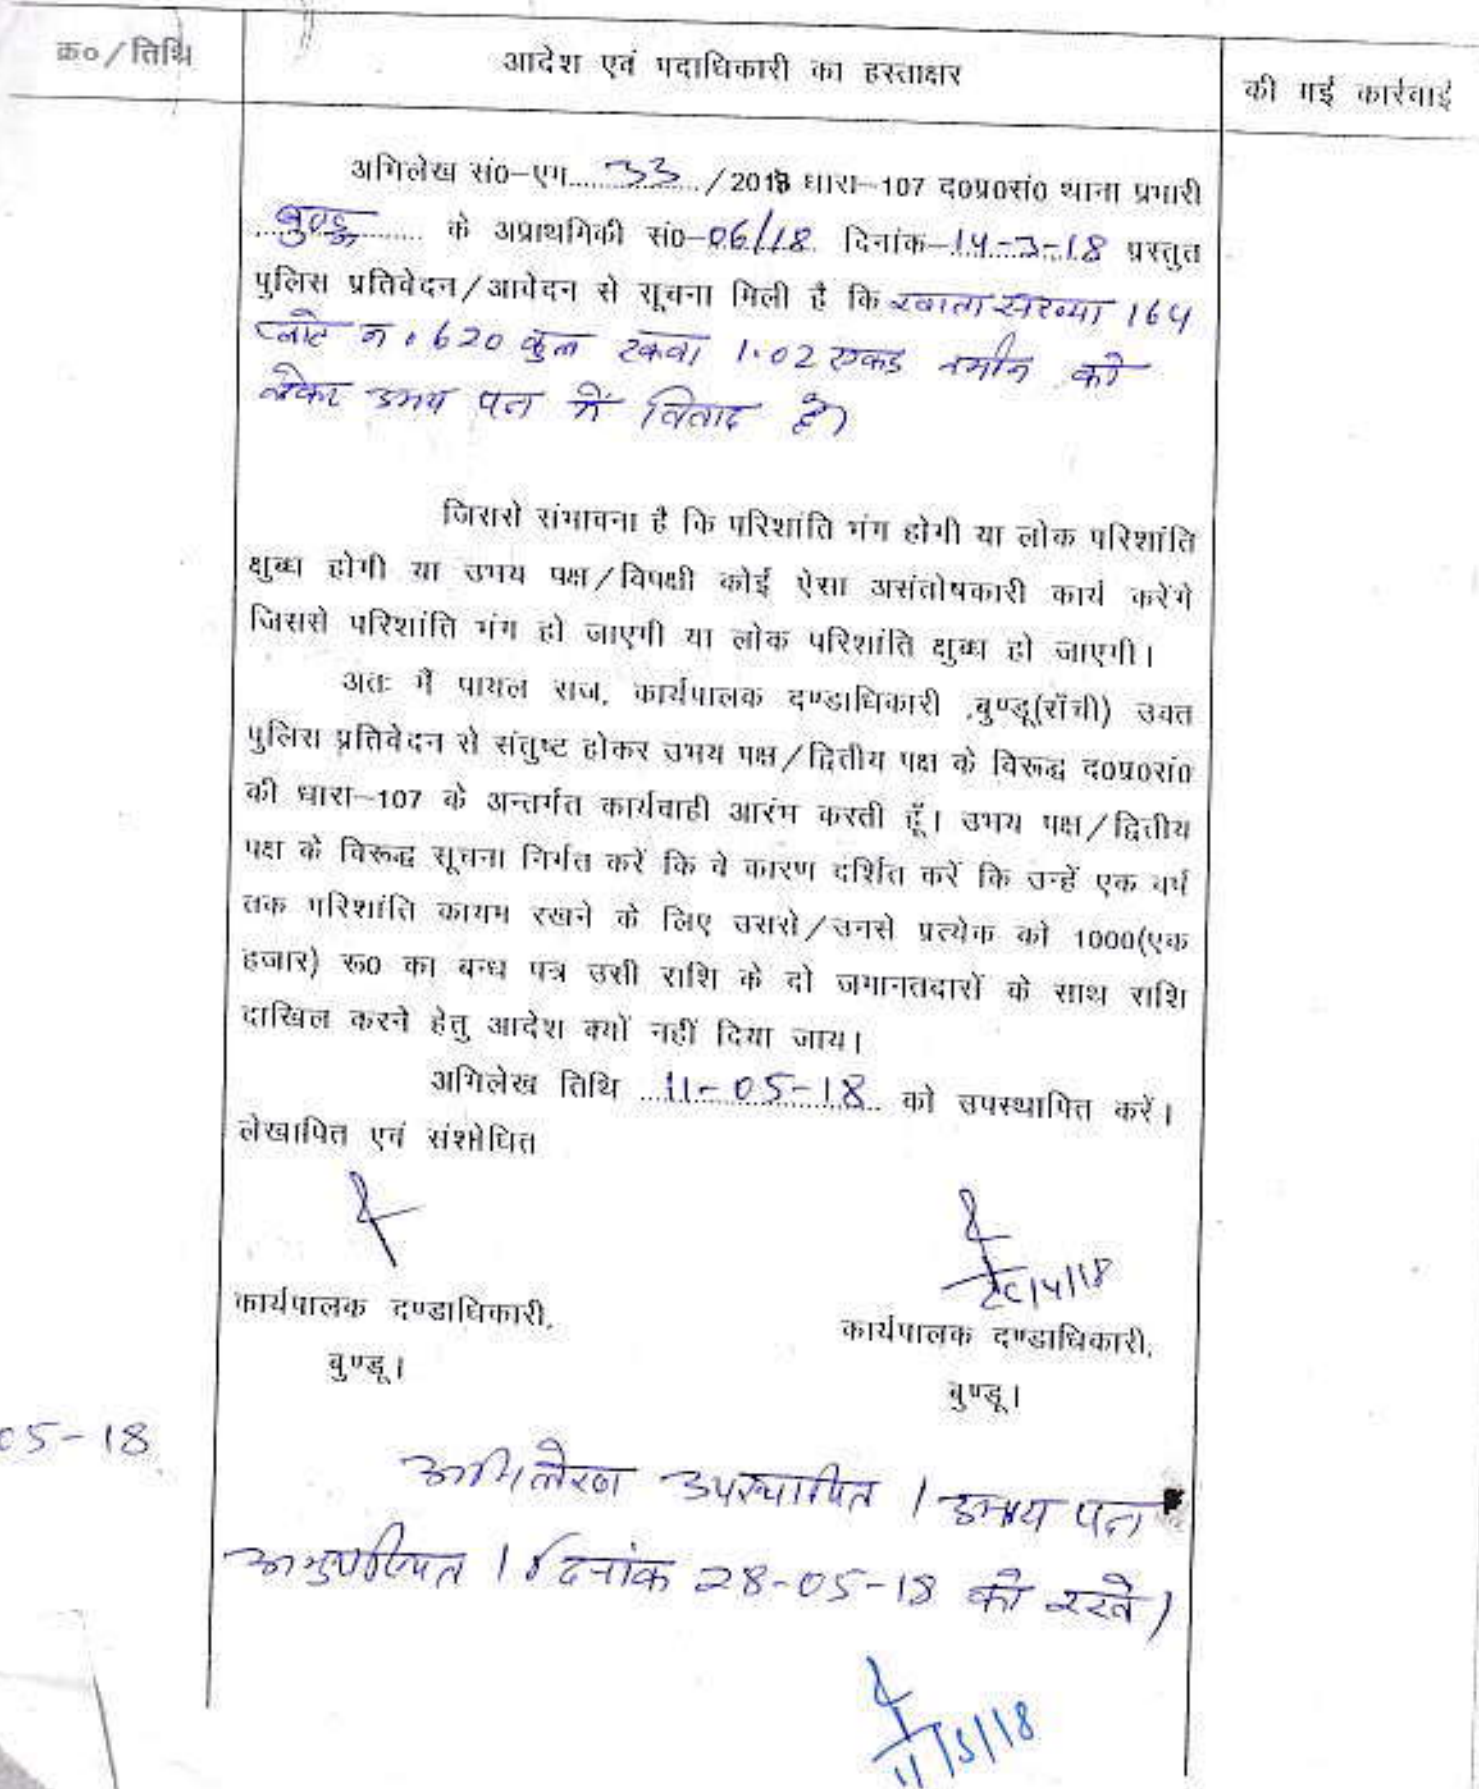 क्र० / तिथि
आदेश एवं पदाधिकारी का हस्ताक्षर
की गई कार्रवाई
अभिलेख सं०-एम 33 /2018 धारा-107 द०प्र०सं० थाना प्रभारी
बुण्डू के अप्राथमिकी सं०-06/18 दिनांक-14-3-18 प्रस्तुत
पुलिस प्रतिवेदन/आवेदन से सूचना मिली है कि खाता संख्या 164
प्लोट न. 620 कुल रकवा 1.02 एकड जमीन को
लेकर उभय पक्ष में विवाद है।
जिससे संभावना है कि परिशांति भंग होगी या लोक परिशांति
क्षुब्ध होगी या उभय पक्ष/विपक्षी कोई ऐसा असंतोषकारी कार्य करेंगे
जिससे परिशांति भंग हो जाएगी या लोक परिशांति क्षुब्ध हो जाएगी।
अतः मैं पायल राज, कार्यपालक दण्डाधिकारी ,बुण्डू(राँची) उक्त
पुलिस प्रतिवेदन से संतुष्ट होकर उभय पक्ष/द्वितीय पक्ष के विरूद्ध द०प्र०सं०
की धारा-107 के अन्तर्गत कार्यवाही आरंभ करती हूँ। उभय पक्ष/द्वितीय
पक्ष के विरूद्ध सूचना निर्गत करें कि वे कारण दर्शित करें कि उन्हें एक वर्ष
तक परिशांति कायम रखने के लिए उससे/उनसे प्रत्येक को 1000(एक
हजार) रू० का बन्ध पत्र उसी राशि के दो जमानतदारों के साथ राशि
दाखिल करने हेतु आदेश क्यों नहीं दिया जाय।
अभिलेख तिथि 11-05-18 को उपस्थापित करें।
लेखापित एवं संशोधित
कार्यपालक दण्डाधिकारी,
बुण्डू।
/4/18
कार्यपालक दण्डाधिकारी,
बुण्डू।
05-18
अभिलेख उपस्थापित । उभय पक्ष
अनुपस्थित । दिनांक 28-05-18 को रखें।
11/5/18